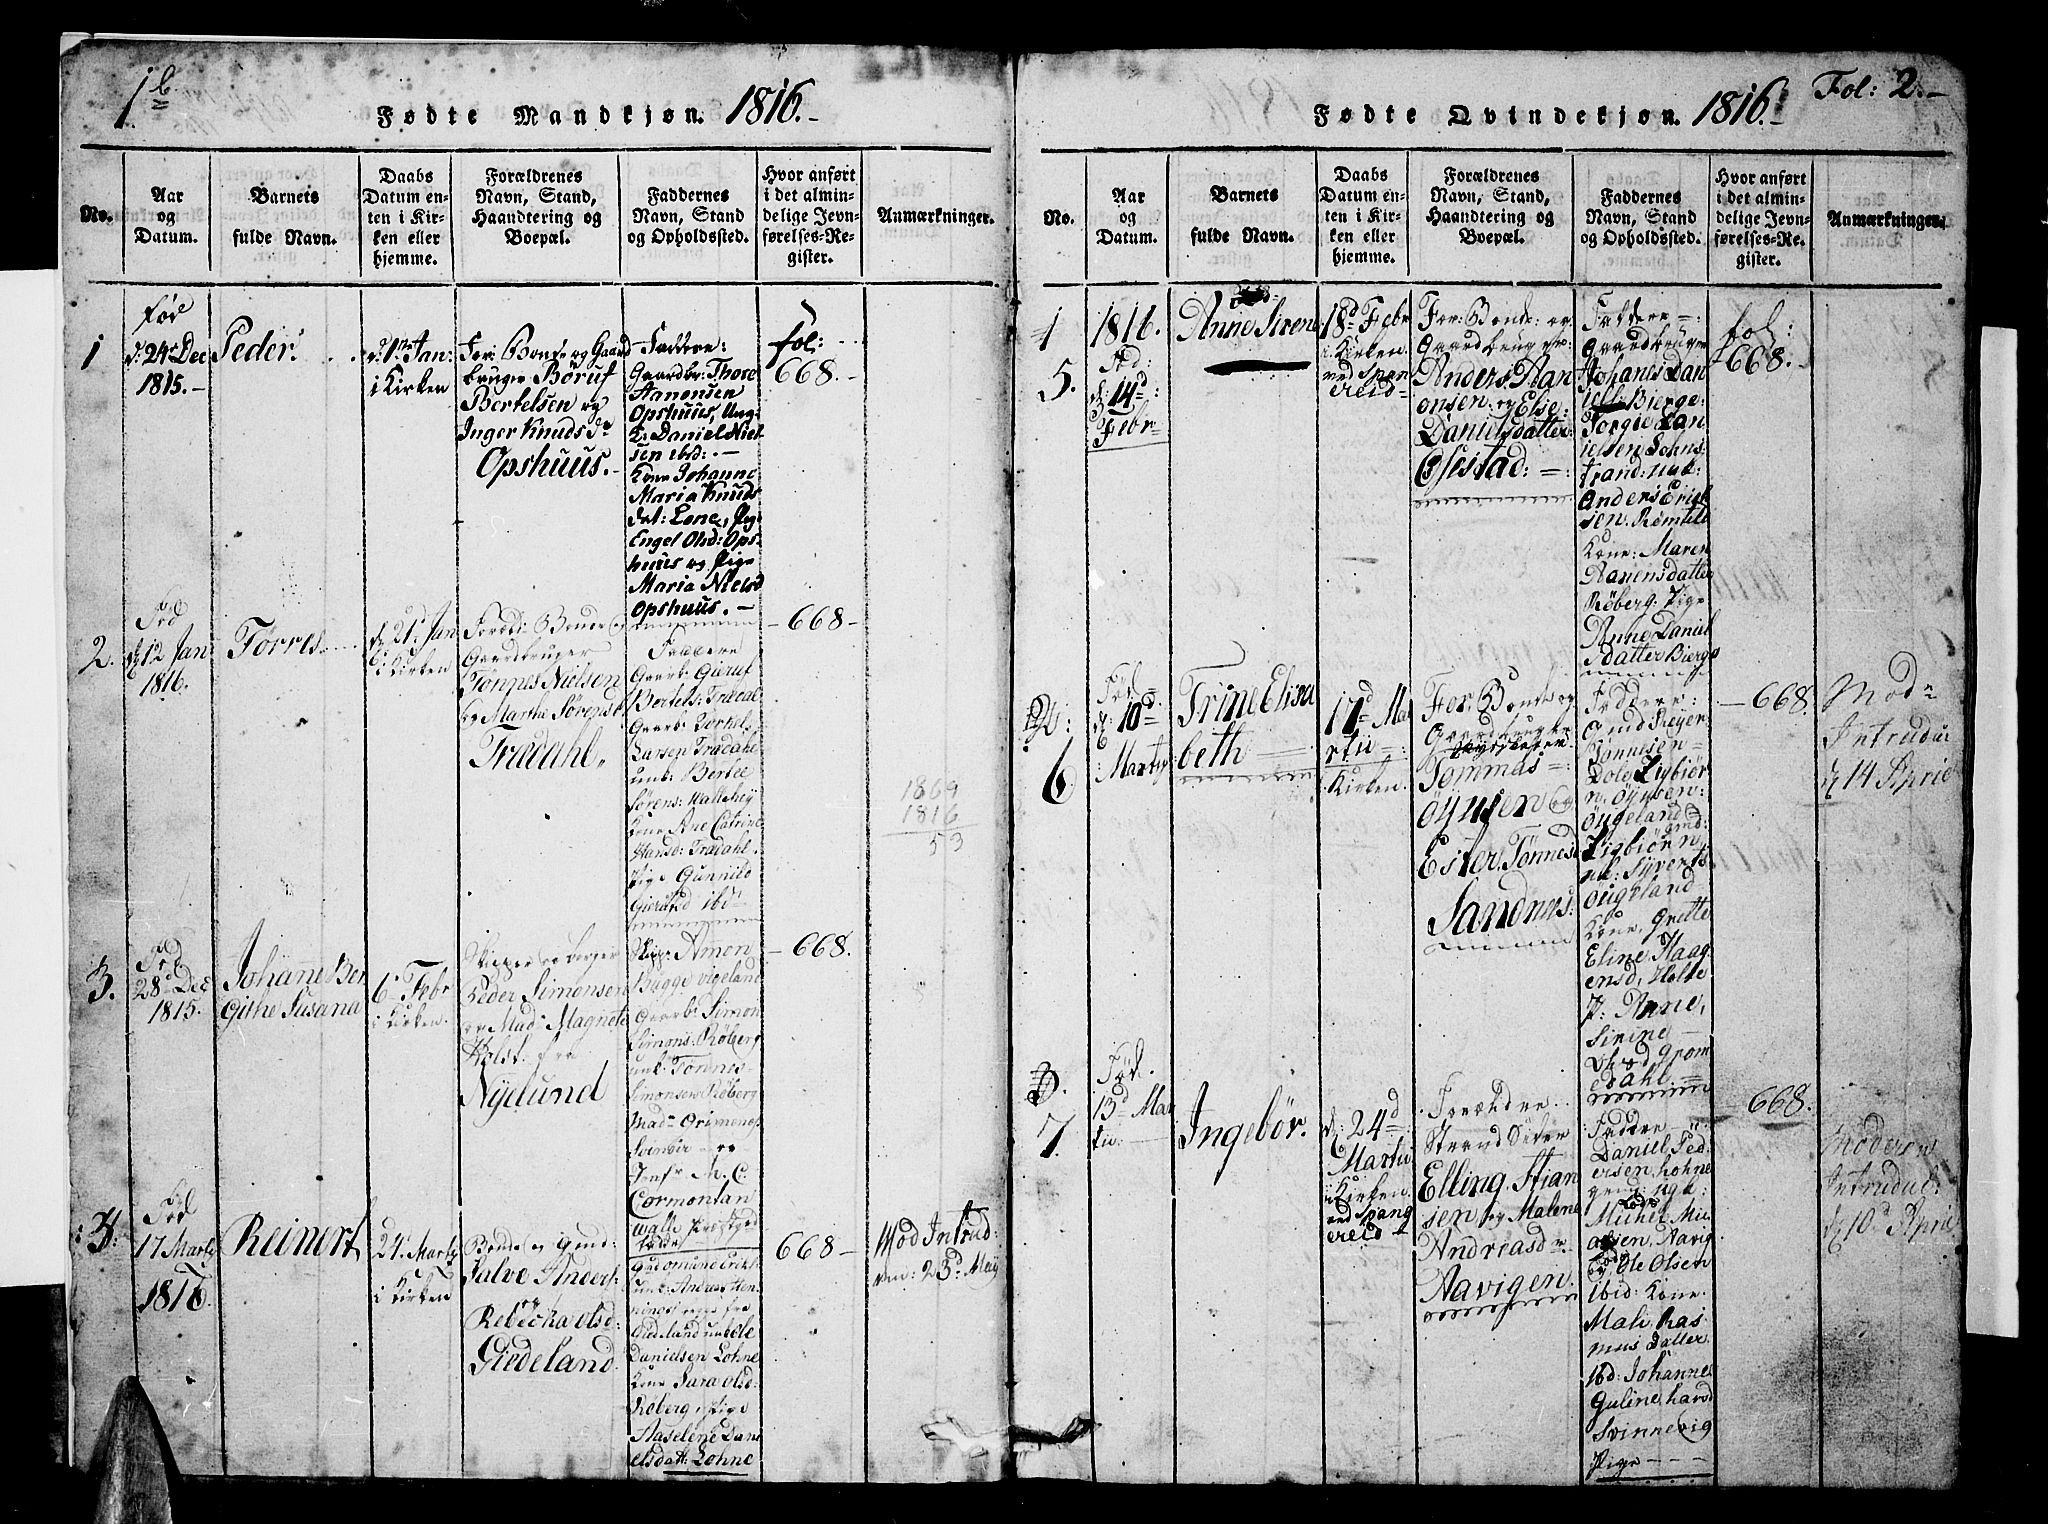 1 b
Fødte Mandkjøn. 1816.
No.
Aar
og
Datum.
Barnets
fulde Navn.
Daabs
Datum en-
ten i Kir-
ken eller
hjemme.
Forældrenes
Navn, Stand,
Haandtering og
Boepæl.
Faddernes
Navn, Stand
og Opholdssted.
Hvor anført
i det almin-
delige Jevn-
førelses-Re-
gister.
Anmærkninger.
1
Fød
d: 24de Dec
1815.
Peder.
1. Jan:
i Kirken
For: Bonde og Gaard
bruger Børuf
Bertelsen og
Inger Knudsdr
Opshuus.
Faddere:
Gaardbr: Thore
Aanonsen
Opshuus, Ung-
k: Daniel Niel
sen ibid:
Kone Johanne
Maria Knuds
dat: Lone, Pig
Engel Olsd: Ops
huus og Pige
Maria Nielsd
Opshuus.
fol:
668.
2.
Fød
d 12 Jan
1816.
Tørres
d. 21d Jan
i Kirken
Bonde og
Gaardbruger
Tønnes Nielsen
og Marthe Sørensd
Trædahl.
Faddere
Gaarb: Gieruf
Bertels: Trædal
Gaarb: Torkel
Larsen Trædahl
unk: Bertel
Sørens: Wattehey
Kone Ane Catrine
Hansd: Trædahl.
Pige Gunnild
ibid
668
1869
1816
53
3.
Fød
28d Dec
1815.
Johanne Ber
Githe Susana
6te Febr
i Kirken.
Skipper og borger
Peder Simonsen
og Mad: Magnete
Holst
Nyelund
Skipp: Amon
Bugge Vigeland
Gaarb: Simon
Simons: Røberg
unk: Tønnes
Simonsen Røberg
Mad:
Svenvir og
Jonfr M. C.
Cormontan
668.
4.
Fød
17 Marty
1816.
Reinert
24 Marty
i Kirken
Bonde
Salve Anders
Rebecka Olsd:
Giedeland
unk: Andreas Hen
ningsen
Gideland unk Ole
Danielsen Lohne
Kone Sara Olsd:
Røberg, Pige
Aaselene Dani
elsdatt: Lohne
668
Mod Introd:
23d Maij
Fødte Qvindekjøn. 1816. Fol: 2.
No.
Aar
og
Datum.
Barnets
fulde Navn.
Daabs
Datum en-
ten i Kir-
ken eller
hjemme.
Forældrenes
Navn, Stand,
Haandtering og
Boepæl.
Faddernes
Navn, Stand
og Opholdssted.
Hvor anført
i det almin-
delige Jevn-
førelses-Re-
gister.
Anmærkninger.
1
5.
1816.
d: 14d
Febr
Anne Sirene
18d Febr
i Kirken
ved Span
ereid
For: Bonde og
Gaardbruger
Anders Aan
onsen og Else
Danielsdatter
Osestad:
Faddere
Gaardbruger
Johanes Dan
iels: Bierge:
Torgie Dan
ielsen Lohns
trand: unk:
Anders Erich
sen
Kone: Maren
Aanensdatter
Røberg. Pige
Anne Daniel
sdatter Bierge
fol:
668.
2
6
Fød
d. 10d
Marty
Trine Elisa
beth
17d Ma
rtii
i Kirken.
For: Bonde og
Gaardbruger
Tommas
Øynsen og
Ester Tønnesd
Sandnes:
Faddere:
Tønnesen
Dole, Sigbiør
n. Øynsen
Øugeland
Sigbiørn
Syverts
Øugeland
Kone, Grette
Eline Haag
ensd, Holte
P: Anne
Sirine
Grom
sdahl.
668.
Mod:
Introdu
d. 14 April
3.
7.
Fød.
13d Mar
tii:
Ingebør.
d. 24d
Martii
i Kirken
ved Spang
ereid
Forældre
Strand Sidder
Elling Stian
sen og Malene
Andreasd
Aavigen.
Faddere
Daniel Ped
ersen Lohne
Michel Mic
elsen, Aavig
Ole Olsen
ibid: Kone.
Mali Ras
mus datter
ibd: Johanne
Guline
Svinnevig
Pige
668.
Moderen
Introdu:
d. 10d April